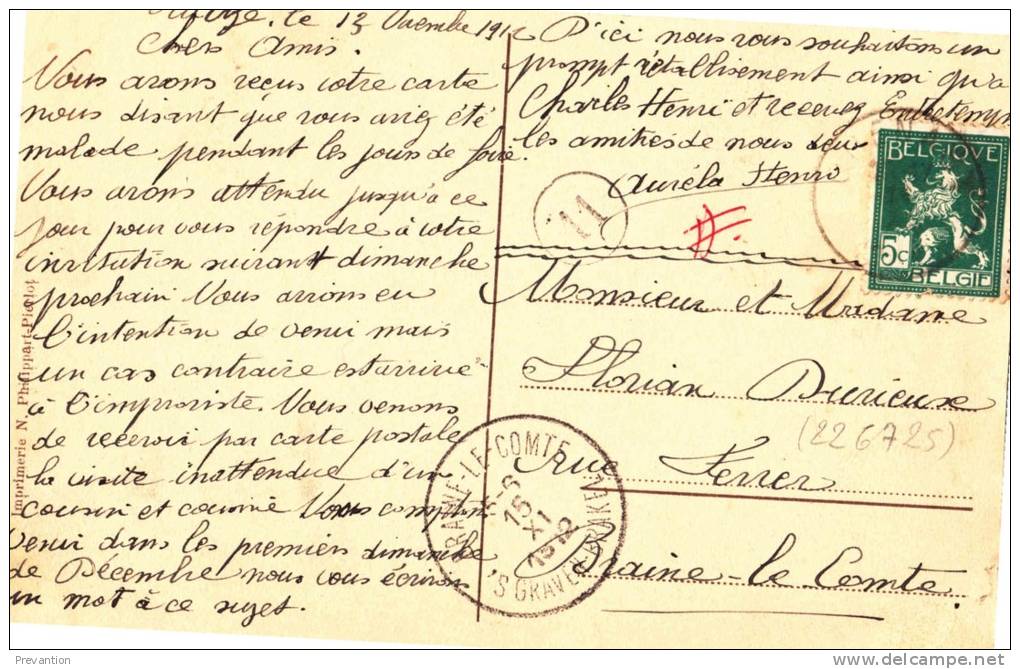 le 13 Novembre 1912
Chers Amis.
Nous avons reçus votre carte
nous disant que vous aviez été
malade pendant les jours de foire.
Nous avons attendu jusqu'à ce
jour pour vous répondre à votre
invitation suivant dimanche
prochain Nous avions eu
l'intention de venir mais
un cas contraire est arrivé
à l'improviste. Nous venons
de recevoir par carte postale
la visite inattendue d'un
cousin et cousine Nous comptons
venir dans les premiers dimanche
de Décembre nous vous écrirons
un mot à ce sujet.
D'ici nous vous souhaitons un
prompt rétablissement ainsi qu'a
Charles Henri et recevez Entretemps
les amitiés de nous deux
Auréla Henri
11
BELGIQUE
5c
BELGIË
Monsieur et Madame
Florian Durieux
(226725)
rue Ferrer
Braine-le-Comte.
BRAINE-LE-COMTE
15
XI
1912
'S GRAVENBRAKEL
Imprimerie N. Philippart-Pierlot
Prevantion
delcampe.net